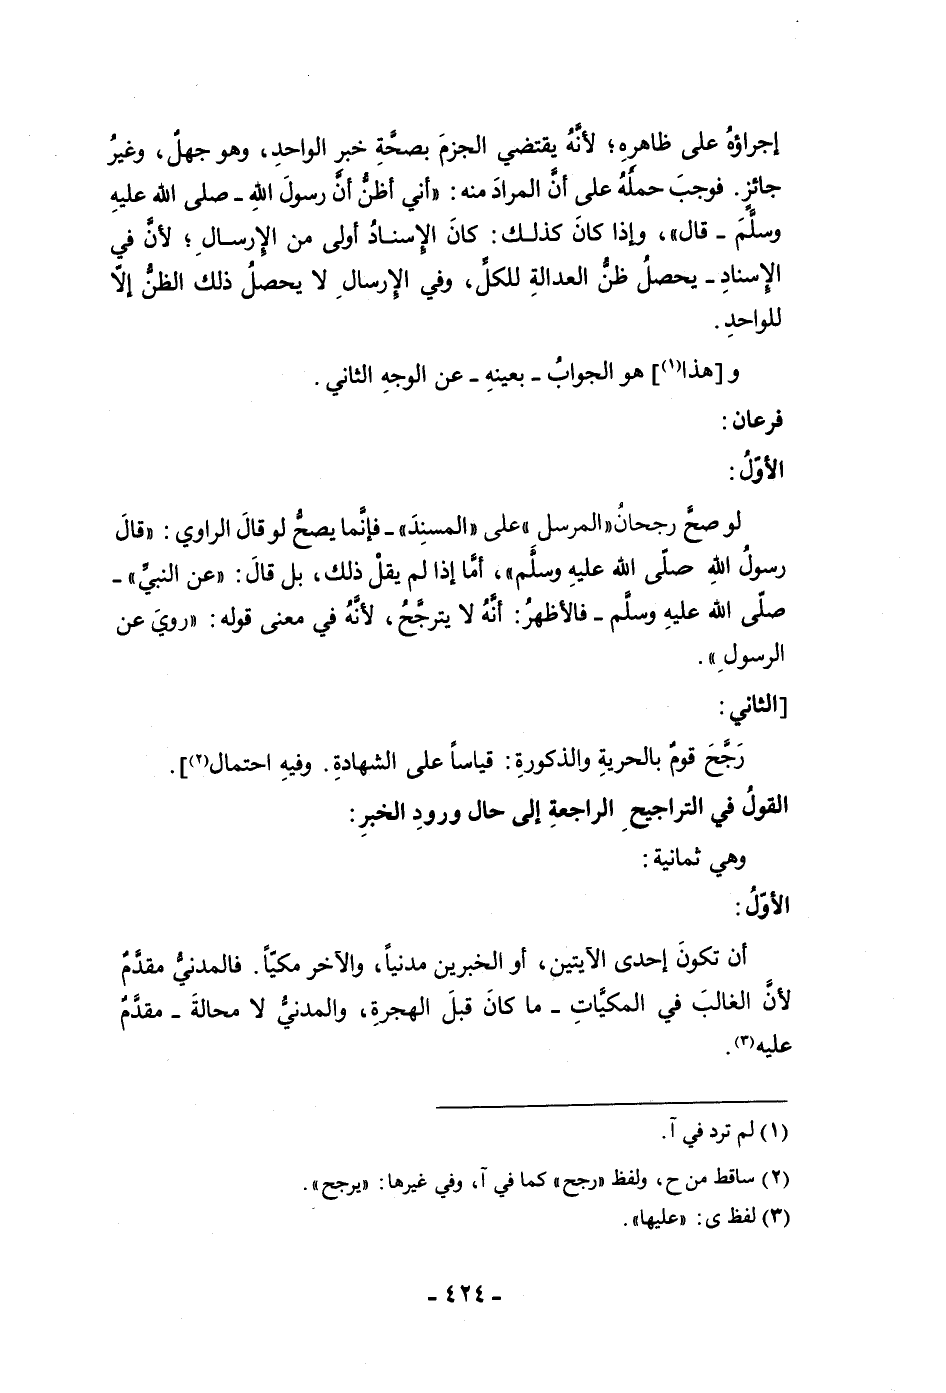 إجراؤهُ على ظاهرِهِ؛ لأنَّهُ يقتضي الجزمَ بصحَّةِ خبرِ الواحدِ، وهو جهلٌ، وغيرُ
جائزٍ. فوجبَ حملُهُ على أنَّ المرادَ منه: «أني أظنُّ أنَّ رسولَ اللهِ ـ صلى الله عليهِ
وسلَّمَ ـ قال»، وإذا كانَ كذلك: كانَ الإِسنادُ أولى من الإِرسالِ؛ لأنَّ في
الإِسنادِ ـ يحصلُ ظنُّ العدالةِ للكلِّ، وفي الإِرسالِ لا يحصلُ ذلك الظنُّ إلّا
للواحدِ.
و [هذا(١)] هو الجوابُ ـ بعينهِ ـ عن الوجهِ الثاني.
فرعان:
الأوّلُ:
لو صحَّ رجحانُ «المرسل» على «المسنِدَ» ـ فإنَّما يصحُّ لو قالَ الراوي: «قالَ
رسولُ اللهِ صلّى الله عليهِ وسلَّم»، أمَّا إذا لم يقلْ ذلك، بل قالَ: «عن النبيِّ» ـ
صلّى الله عليهِ وسلَّم ـ فالأظهرُ: أنَّهُ لا يترجَّحُ، لأنَّهُ في معنى قوله: «رويَ عن
الرسولِ».
[الثاني:
رَجَّحَ قومٌ بالحريةِ والذكورةِ: قياساً على الشهادةِ. وفيهِ احتمال(٢)].
القولُ في التراجيحِ الراجعةِ إلى حال ورودِ الخبرِ:
وهي ثمانية:
الأوّلُ:
أن تكونَ إحدى الآيتين، أو الخبرين مدنياً، والآخر مكيّاً. فالمدنيُّ مقدَّمٌ
لأنَّ الغالبَ في المكيَّاتِ ـ ما كانَ قبلَ الهجرةِ، والمدنيُّ لا محالةَ ـ مقدَّمٌ
عليه(٣).
(١) لم ترد في آ.
(٢) ساقط من ح، ولفظ «رجح» كما في آ، وفي غيرها: «يرجح».
(٣) لفظ ى: «عليها».
ـ ٤٢٤ ـ